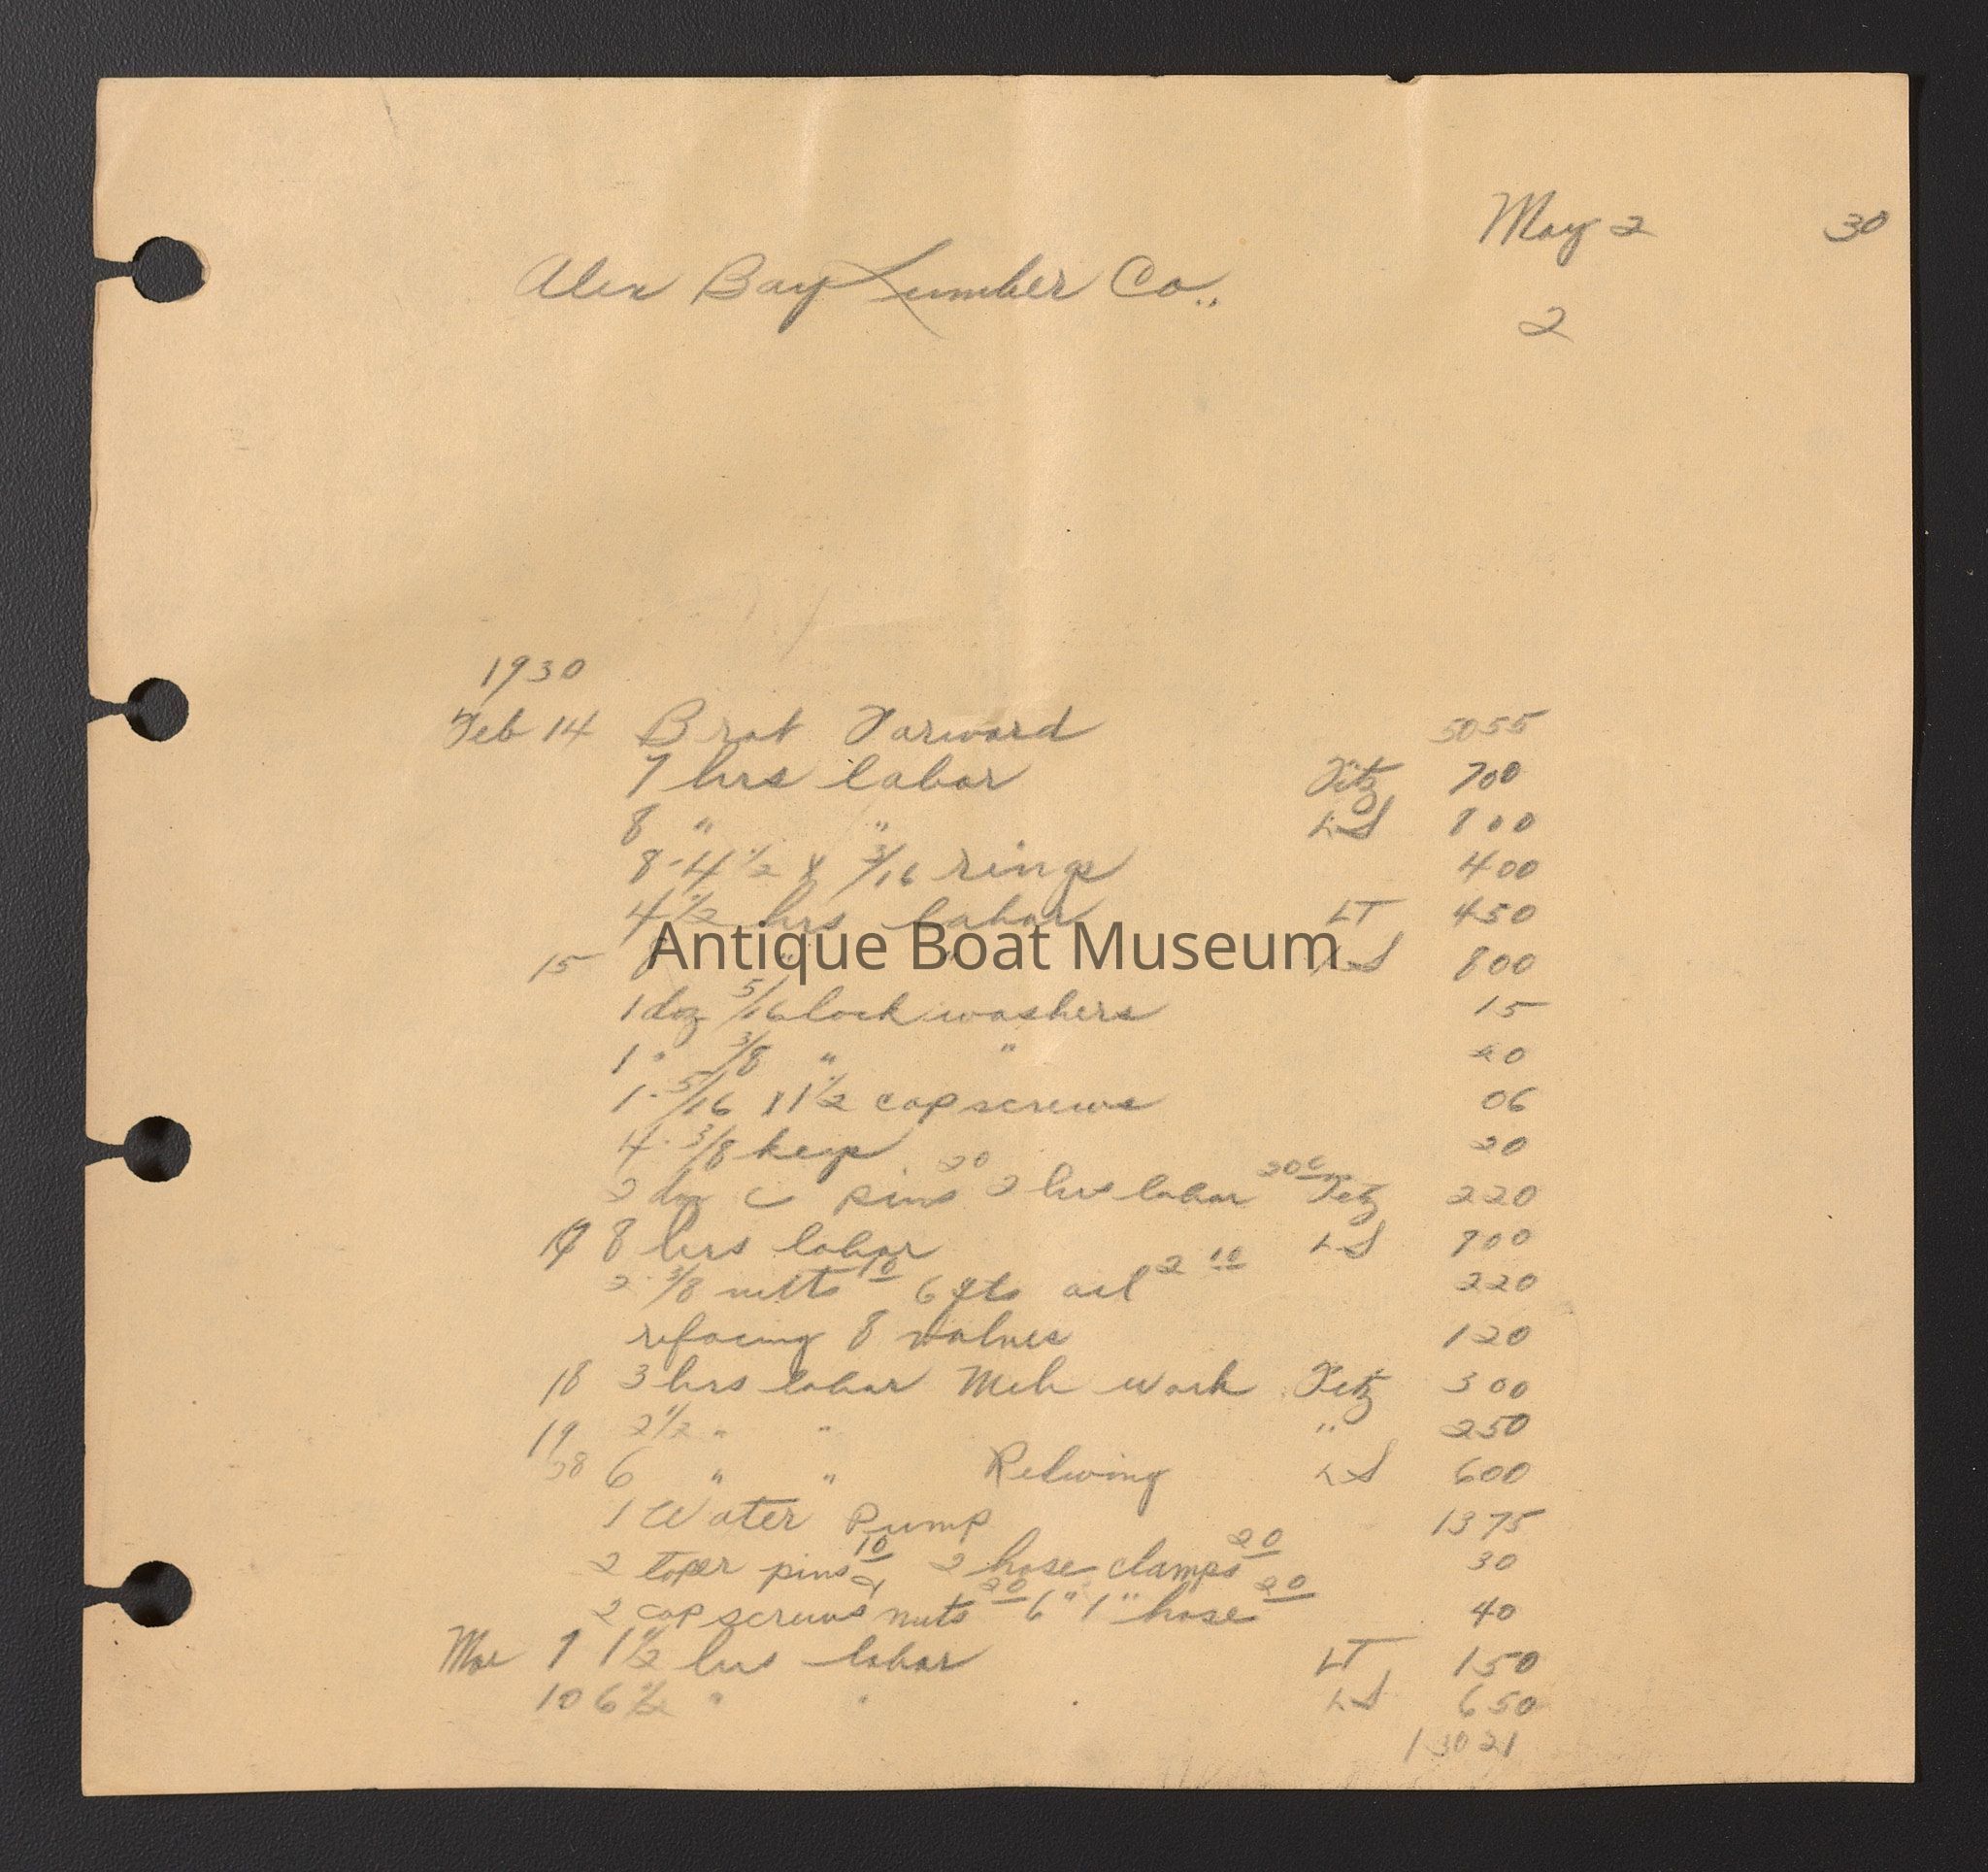 May 2 30
Alex Bay Lumber Co..
2
1930
Feb 14 Brot Forward 5055
7 hrs labor Fitz 700
8 " " LS 800
8-4 1/2 x 3/16 rings 400
4 1/2 hrs labor LT 450
Antique Boat Museum
15 8 " " LS 800
1 doz 5/16 lock washers 15
1 " 3/8 " " 20
1-5/16 x 1 1/2 cap screws 06
4-3/8 keys 20
2 doz C pins 20 2 hrs labor 200 Fitz 220
17 8 hrs labor LS 800
2-3/8 nutts 10 6 qts oil 2 10 220
refacing 8 valves 120
18 3 hrs labor Mch work Fitz 300
19 2 1/2 " " " 250
28 6 " " LS 600
1 Water Pump 1375
2 taper pins 10 2 hose clamps 20 30
2 cap screws & nuts 20 6" 1" hose 20 40
Mar 7 1 1/2 hrs labor LT 150
10 6 1/2 " " LS 650
13021